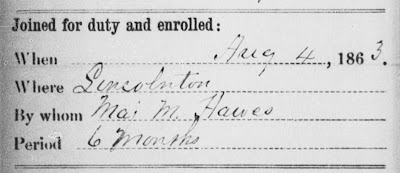 Joined for duty and enrolled:
When Aug 4, 1863.
Where Lincolnton
By whom Maj M. Hawes
Period 6 Months